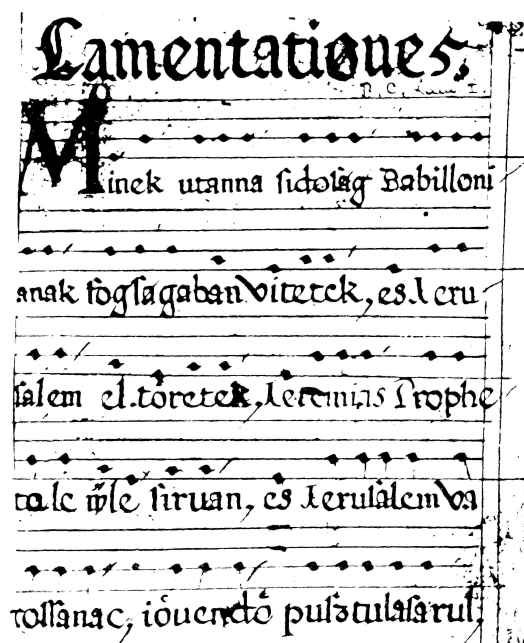 Lamentatioues.
Minek utanna sidosag Babilloni
anak fogsagaban vitetek, es Ieru
salem el. töretek, Ieremias Prophe
ta le ẅle siruan, es Ierusalem va
rossanac, iöuendö pusztulasarul.